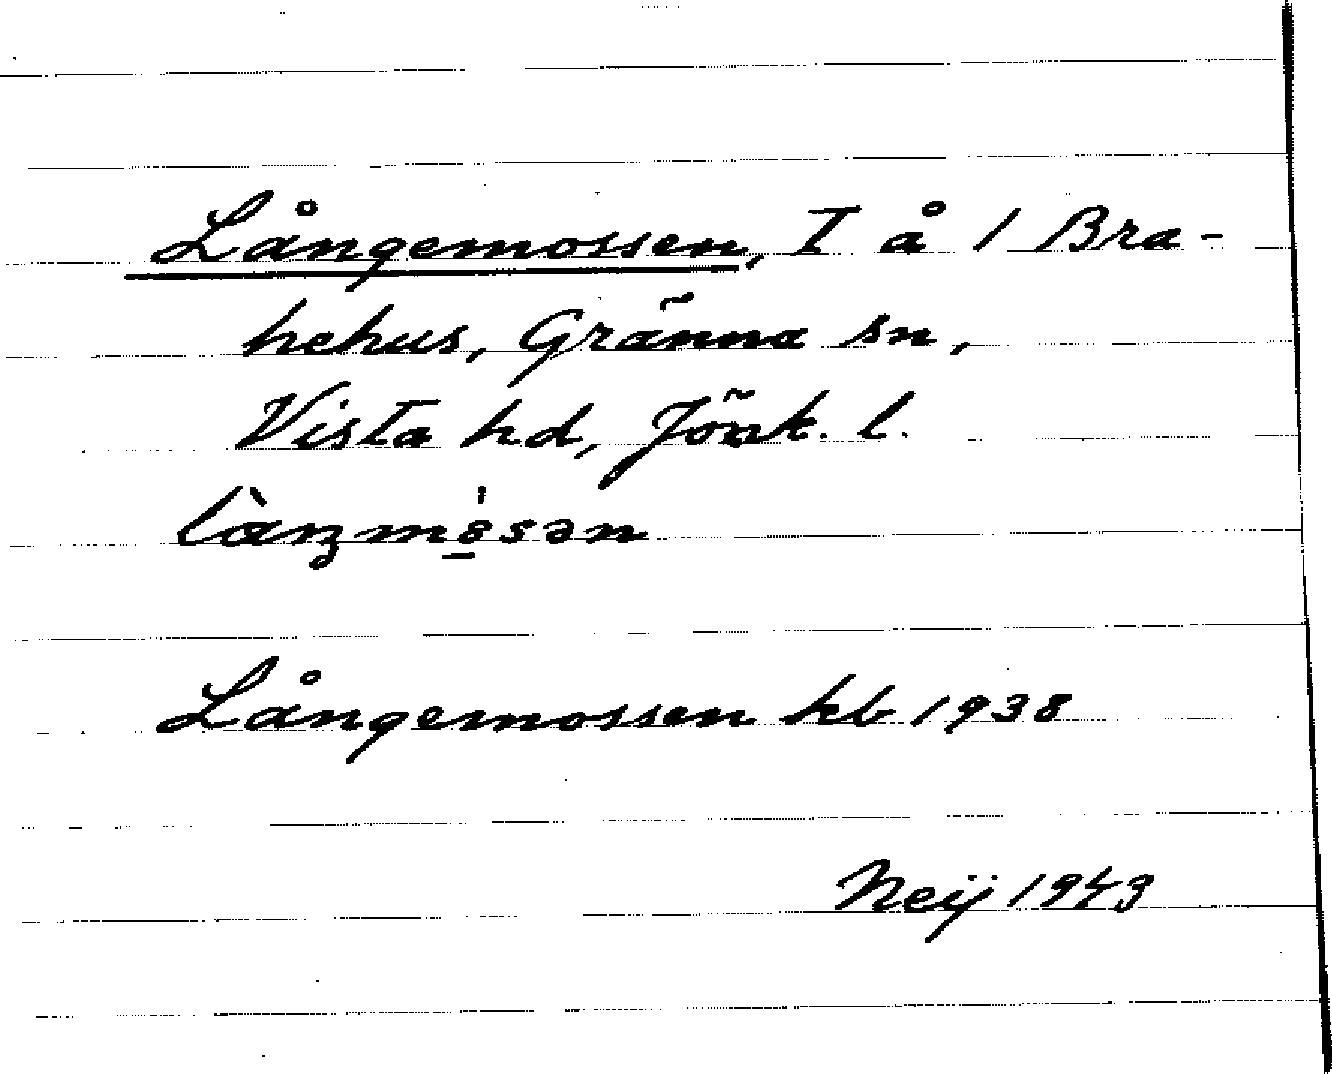 Långemossen, I å 1 Bra-
hehus, Gränna sn,
Vista hd, Jönk. l.
Långemossen kb 1938
Neij 1943